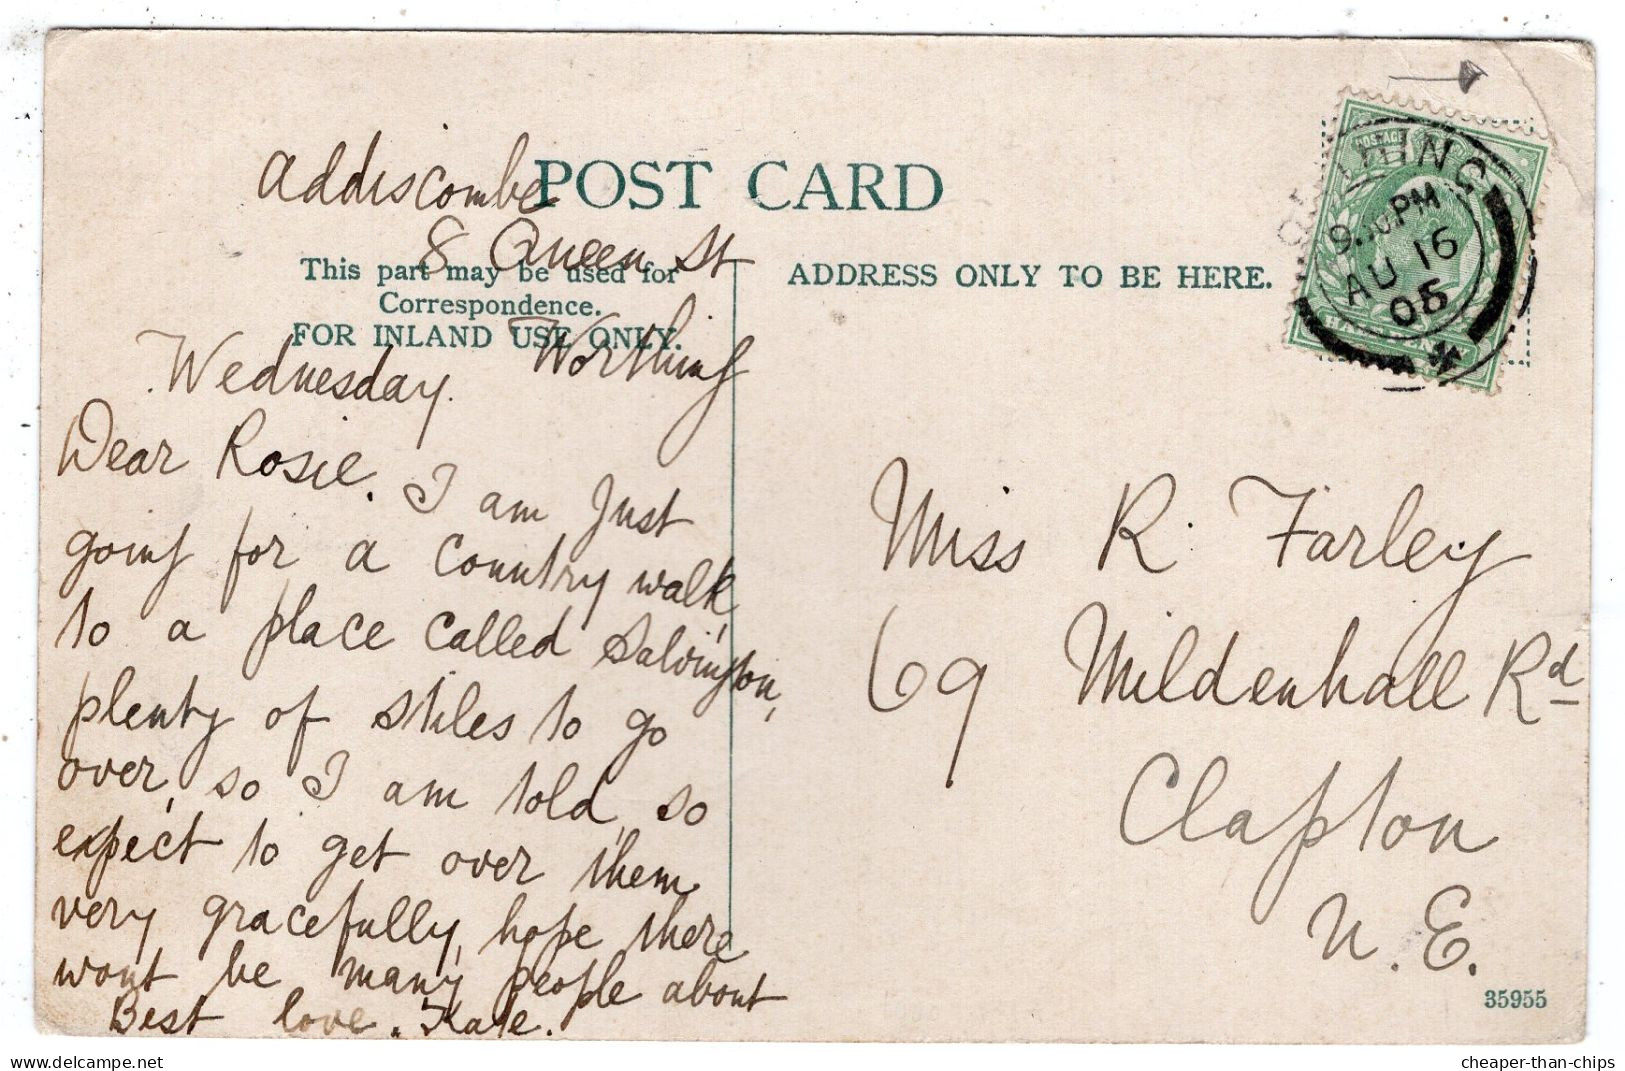 Addiscombe
POST CARD
8 Queen St
This part may be used for
Correspondence.
FOR INLAND USE ONLY.
Worthing
Wednesday.
Dear Rosie. I am Just
going for a Country walk,
to a place called Salvington,
plenty of stiles to go
over, so I am told, so
expect to get over them
very gracefully, hope there
wont be many people about
Best love. Kate.
ADDRESS ONLY TO BE HERE.
WORTHING
9.10PM
AU 16
05
Miss R. Farley
69 Mildenhall Rd
Clapton
N. E.
35955
cheaper-than-chips